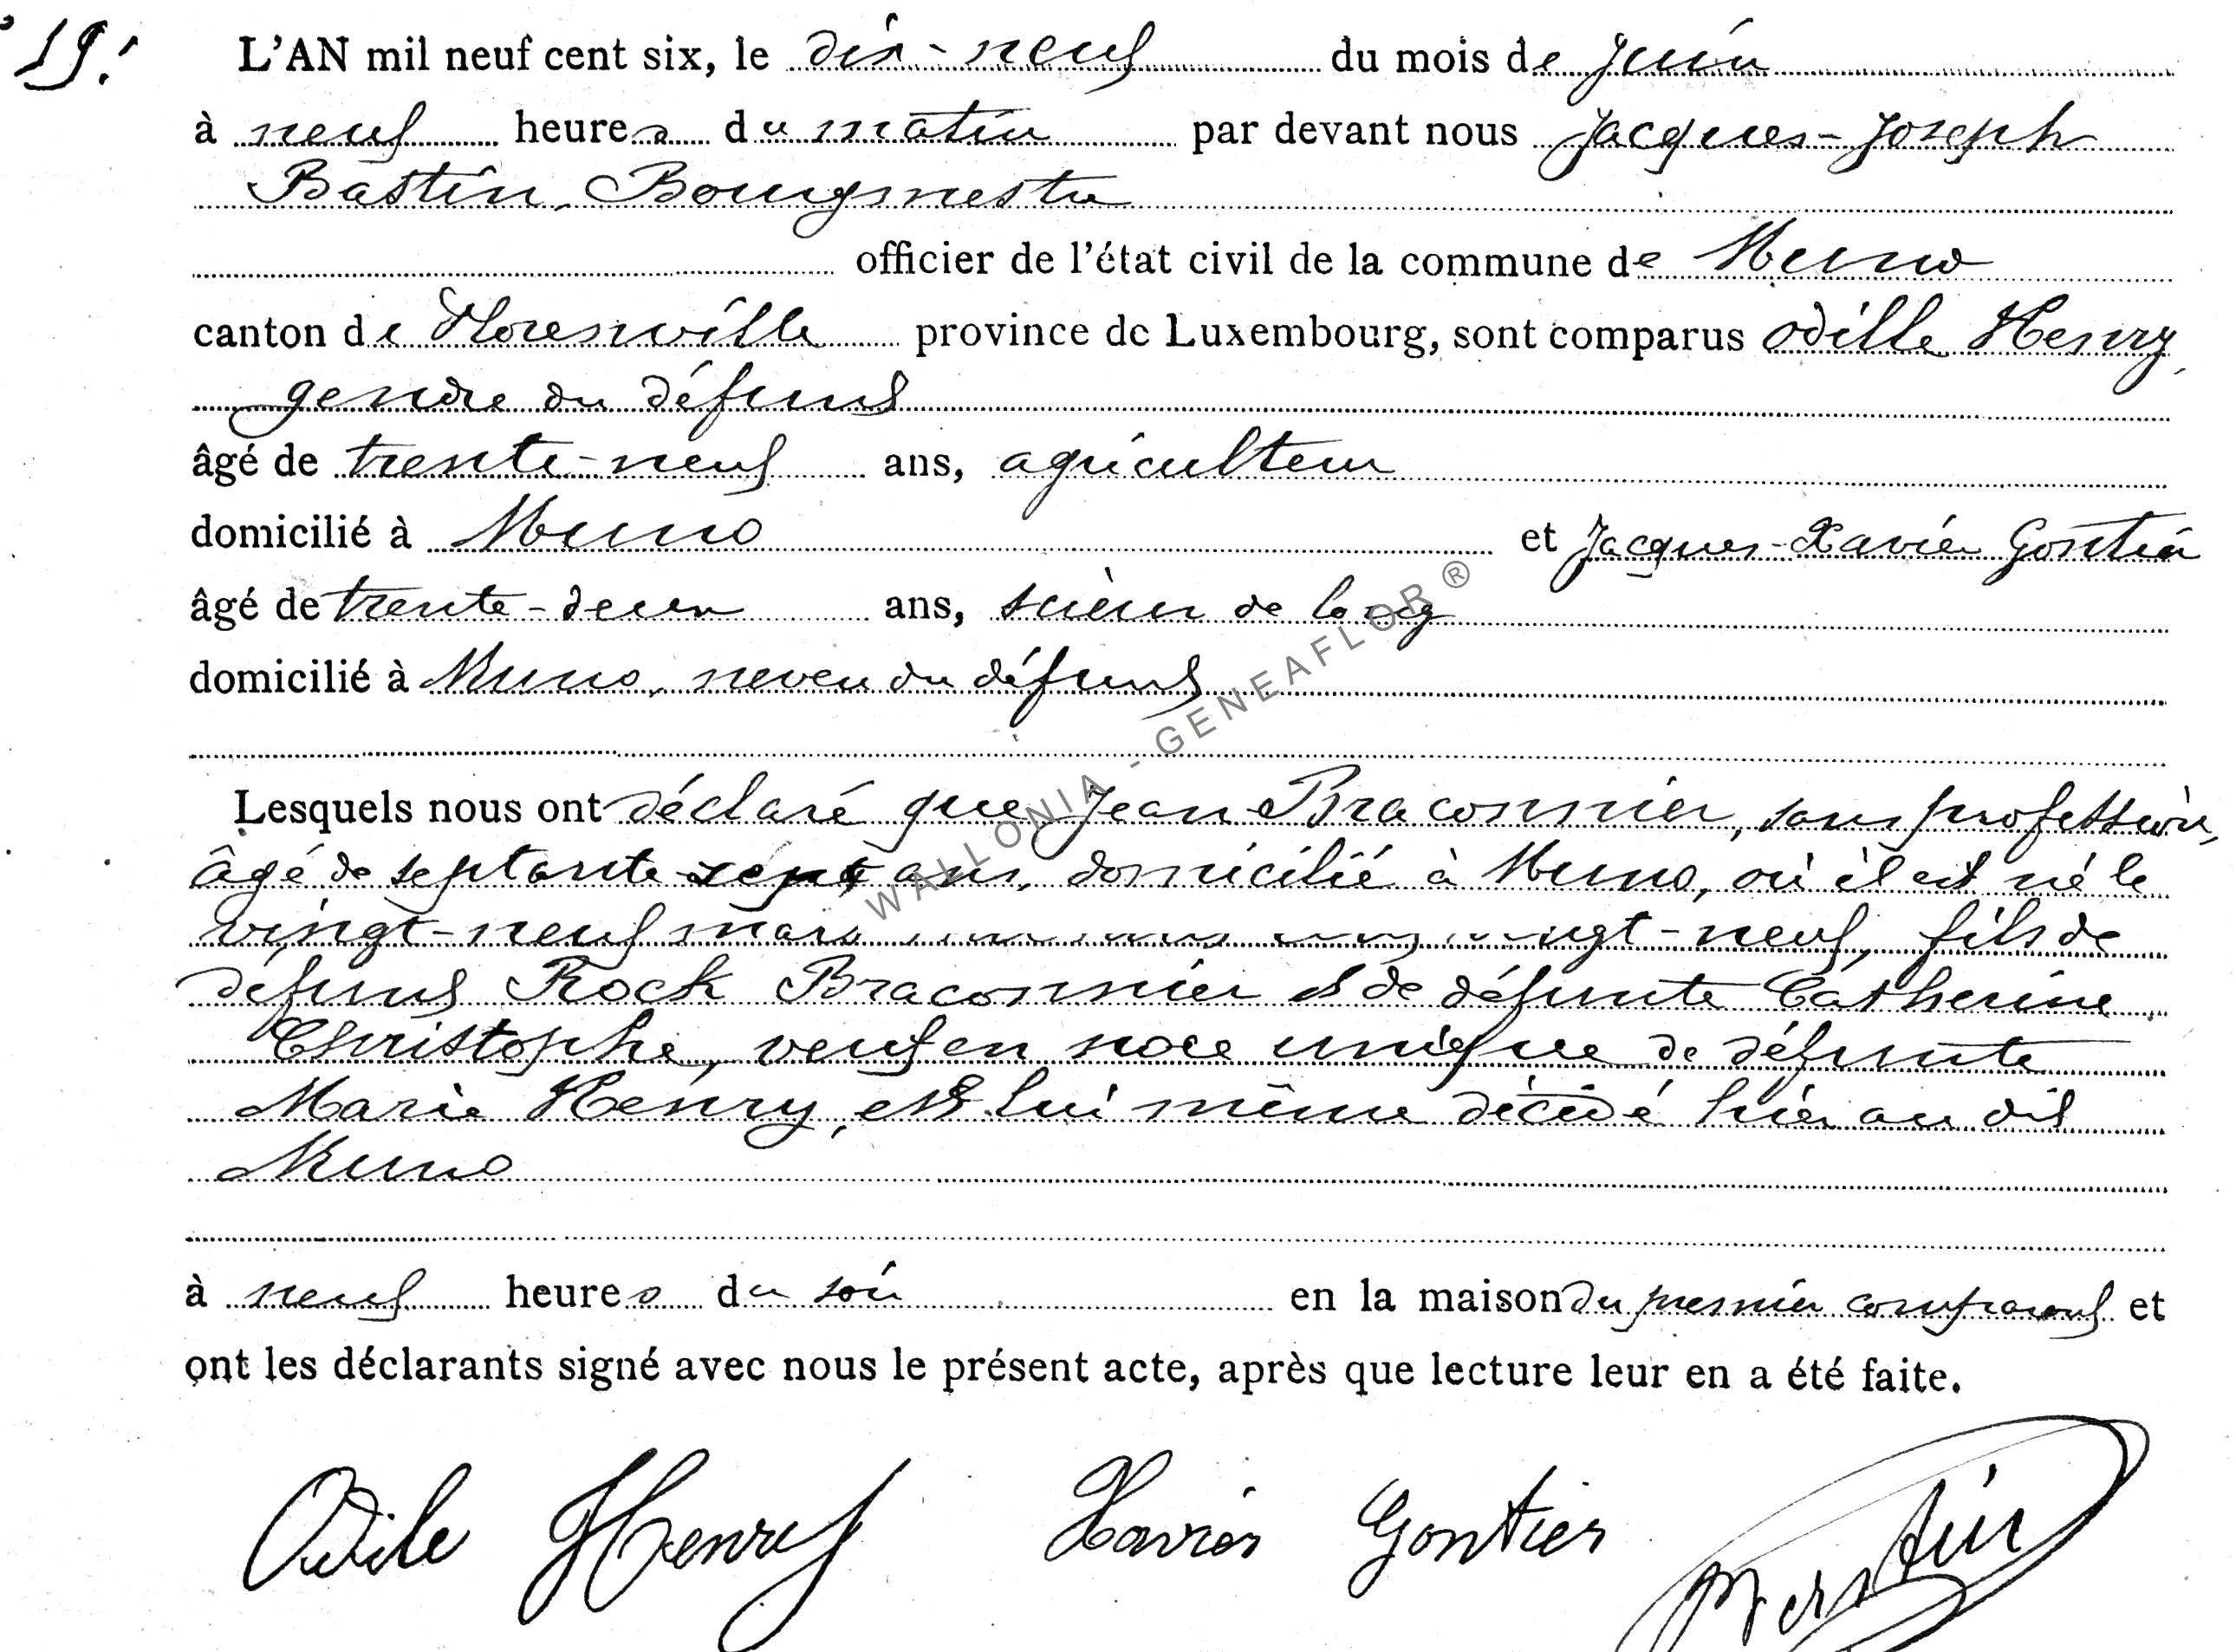 19.
L'AN mil neuf cent six, le dix-neuf du mois de juin
à neuf heures du matin par devant nous Jacques-Joseph
Bastin, Bourgmestre
officier de l'état civil de la commune de Muno
canton de Florenville province de Luxembourg, sont comparus Odille Henry,
gendre du défunt
âgé de trente-neuf ans, agriculteur
domicilié à Muno et Jacques-Xavier Gontier
âgé de trente-deux ans, scieur de long
domicilié à Muno, neveu du défunt
Lesquels nous ont déclaré que Jean Braconnier, sans profession,
âgé de septante sept ans, domicilié à Muno, où il est né le
vingt-neuf mars vingt-neuf, fils de
défunt Rock Braconnier et de défunte Catherine
Christophe, veuf en noce unique de défunte
Marie Henry, est lui même décédé hier au dit
Muno
à neuf heures du soir en la maison du premier comparant et
ont les déclarants signé avec nous le présent acte, après que lecture leur en a été faite.
Odile Henry Xavier Gontier Bastin
WALLONIA - GENEAFLOR ®